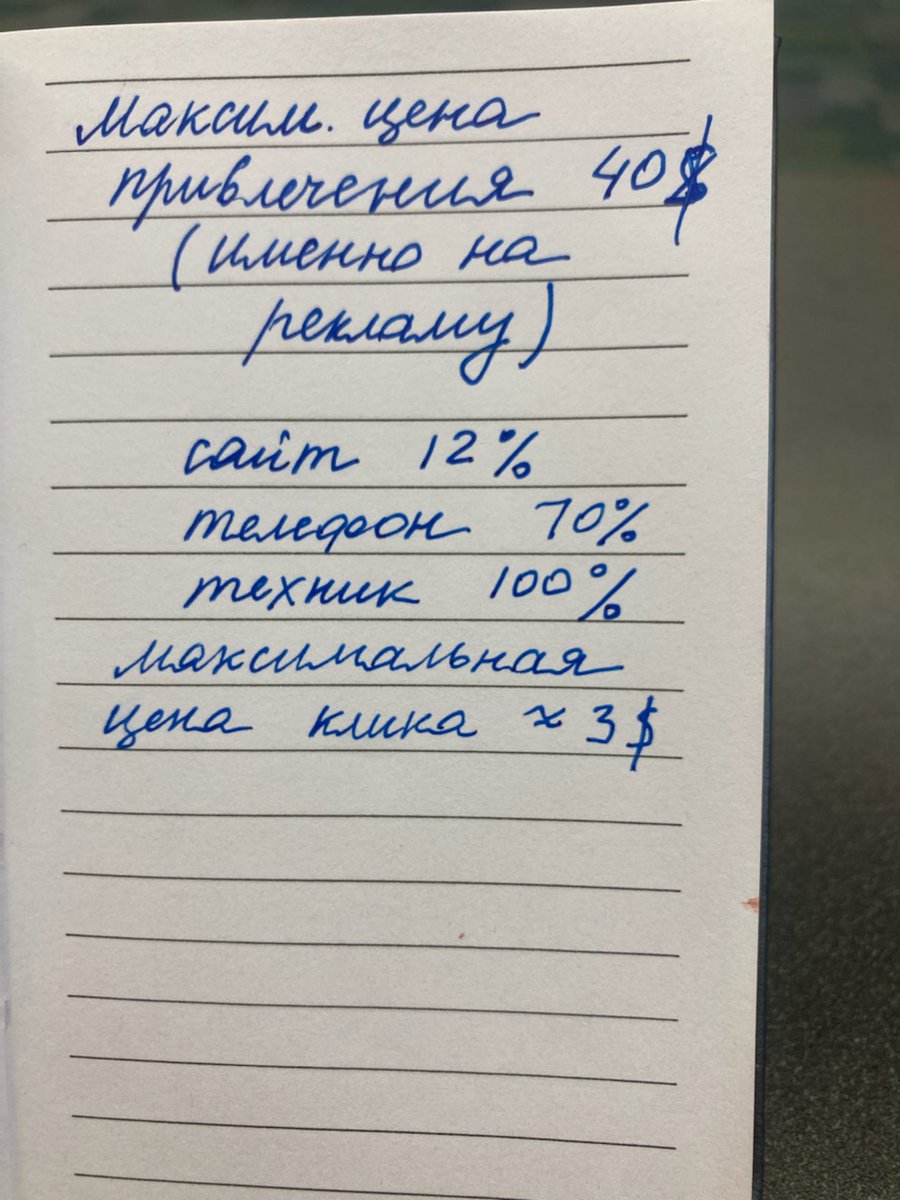 Максим. цена
привлечения 40$
(именно на
рекламу)
сайт 12%
телефон 70%
техник 100%
максимальная
цена клика ≈ 3$